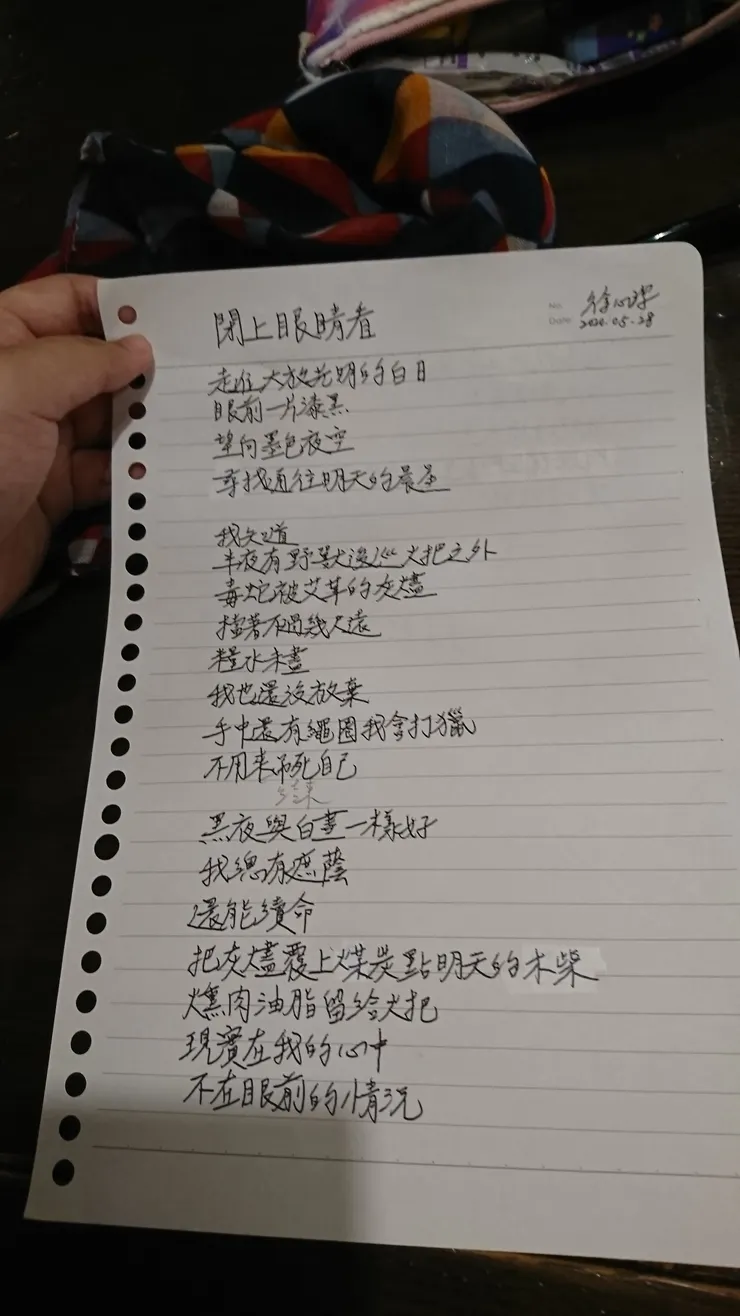 閉上眼睛看
徐心
No.
Date
2020.05.28
走在大放光明的白日
眼前一片漆黑
望向墨色夜空
尋找通往明天的晨
我知道
半夜有野獸逡巡火把之外
毒蛇被艾草的灰燼
擋著不過幾尺遠
糧水未盡
我也還沒放棄
手中還有繩圈我會打獵
不用來吊死自己
結束
黑夜與白晝一樣好
我總有遮蔭
還能續命
把灰燼覆上煤炭點明天的木柴
燻肉油脂留給火把
現實在我的心中
不在眼前的情況